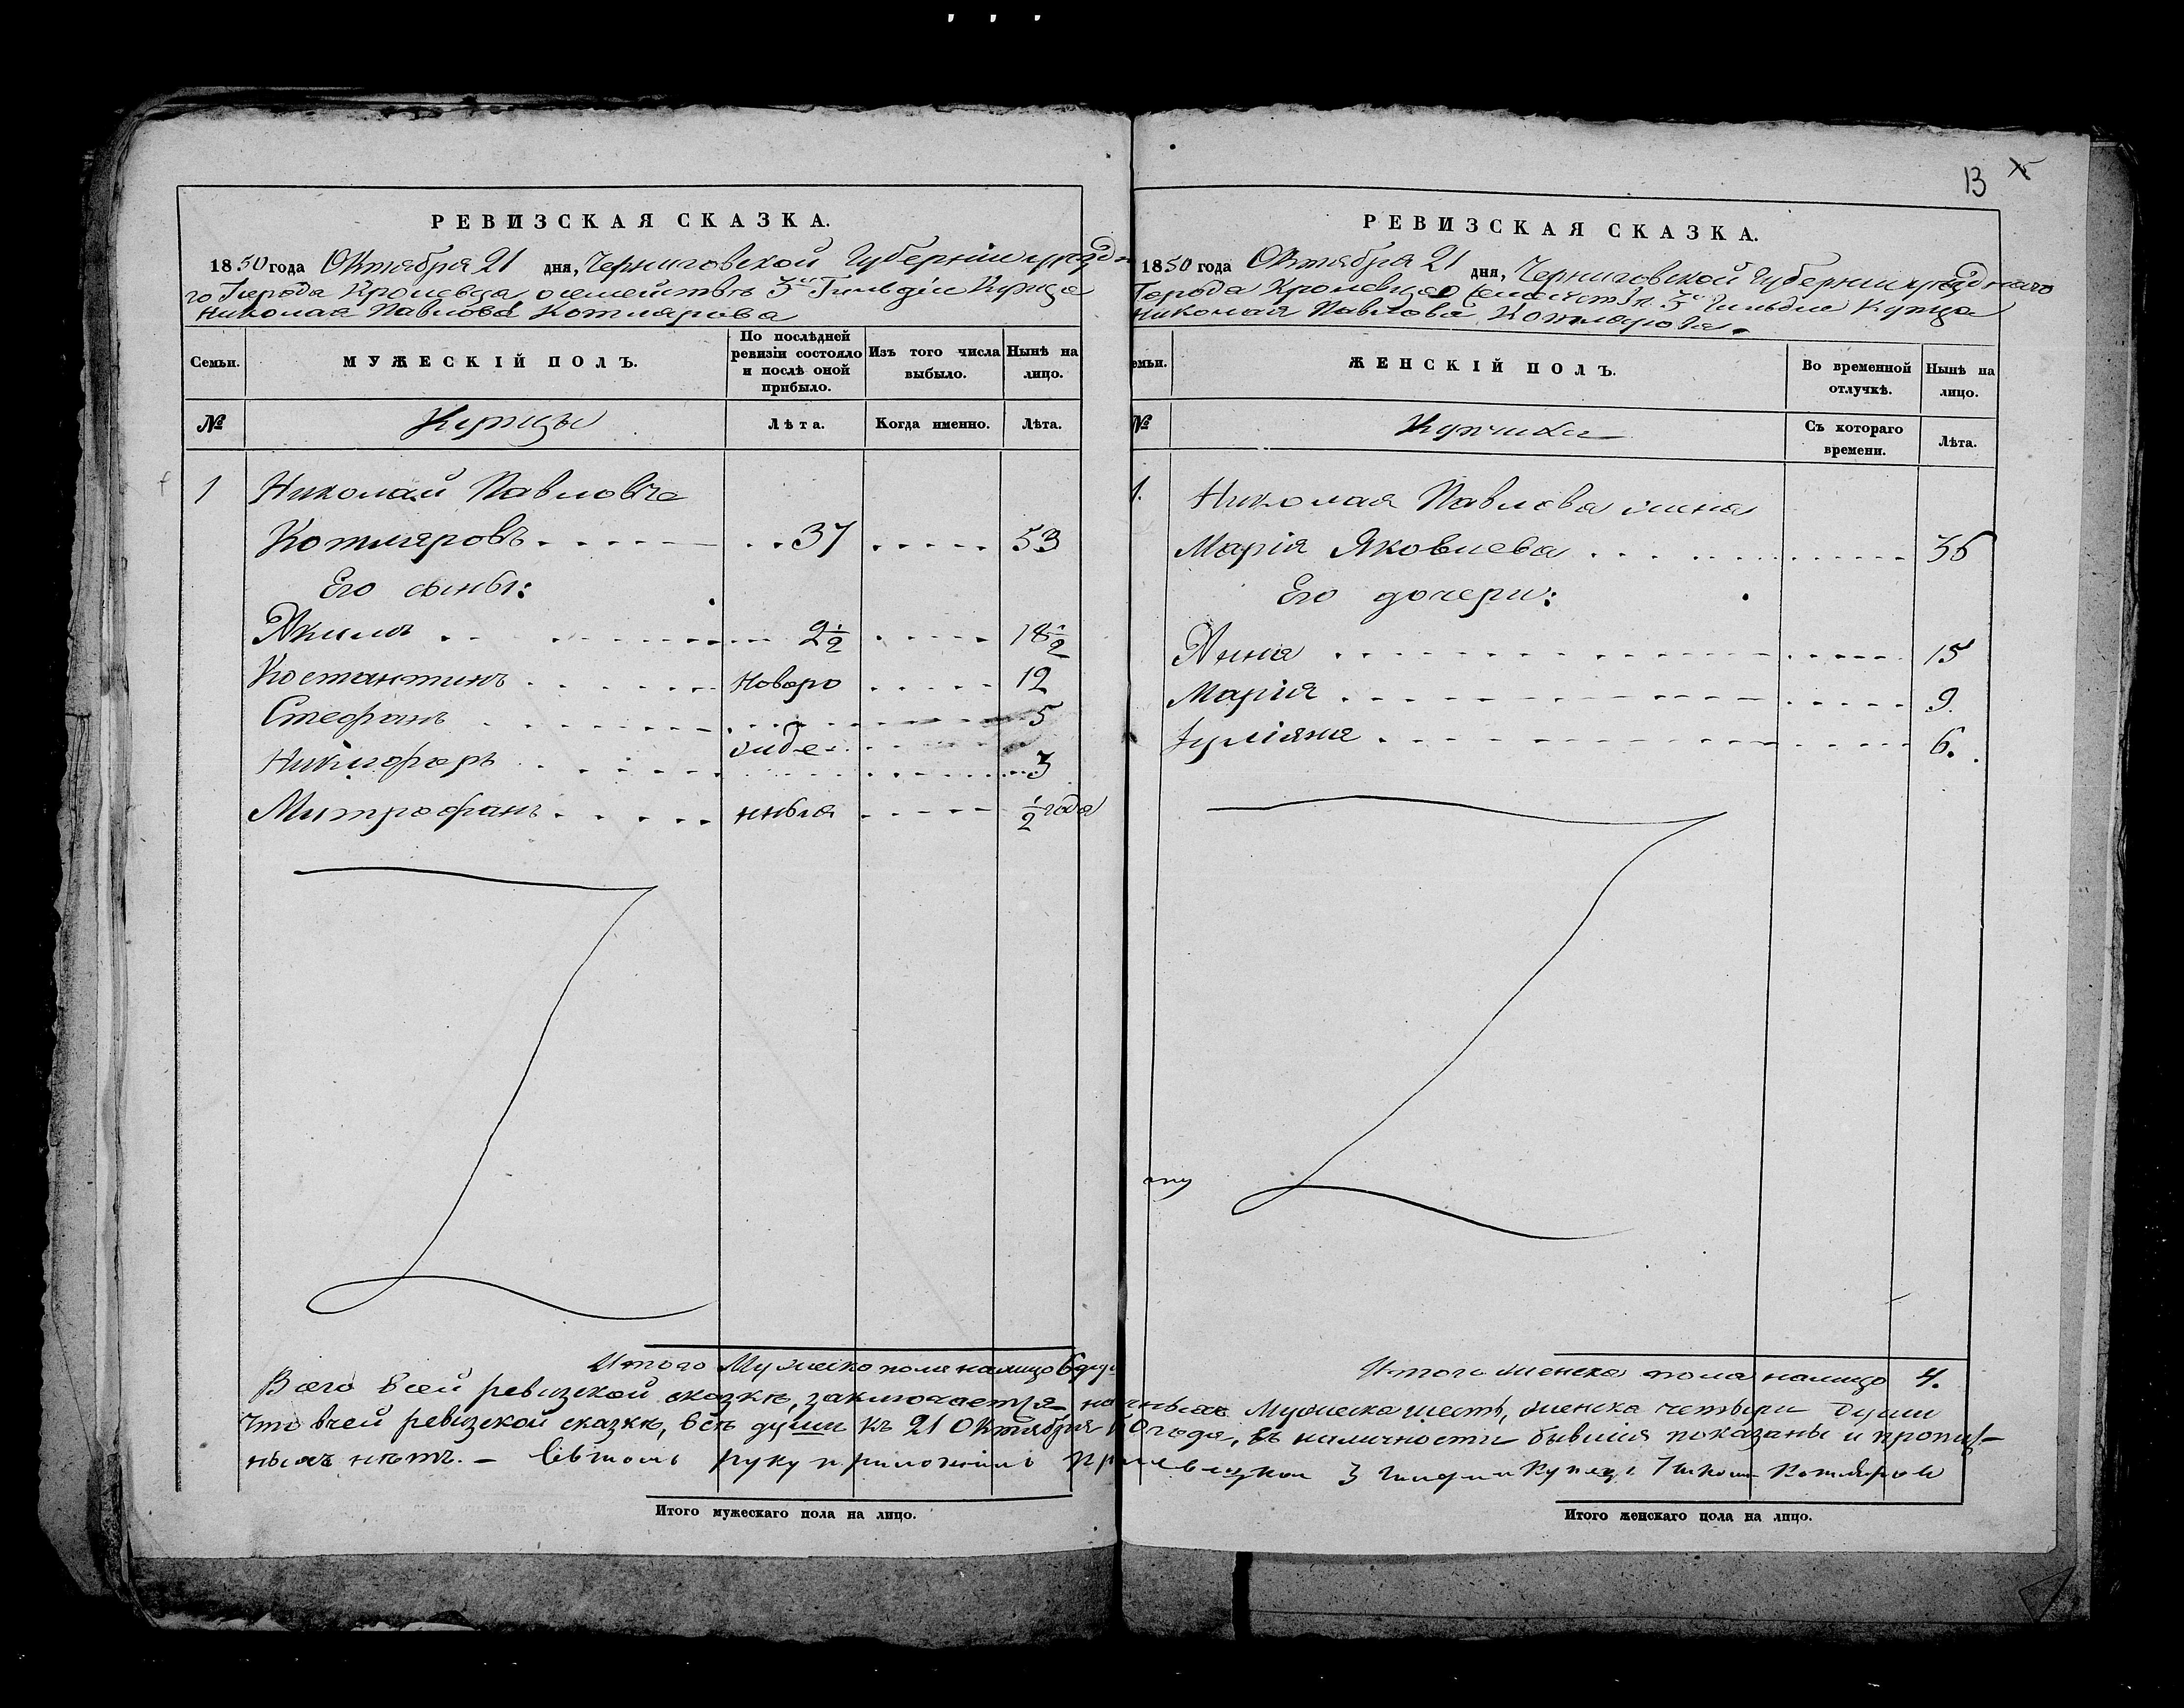 13
РЕВИЗСКАЯ СКАЗКА.
1850 года Октября 21 дня, Черниговской Губерніи уѣзд-
го Города Кролевца, о семействѣ 3й Гильдіи Купца
Николая Павлова Котлярова
Семьи.
МУЖЕСКІЙ ПОЛЪ.
По послѣдней ревизіи состояло и послѣ оной прибыло.
Изъ того числа выбыло.
Нынѣ на лицо.
№ Купцы Лѣта. Когда именно. Лѣта.
1 Николай Павловъ
Котляровъ 37 53
Его сыны:
Якимъ 2 1/2 18 1/2
Костантинъ новоро 12
Стефанъ 5
жде-
Никифоръ 3
Митрофанъ нныя 1/2 года
Итого Мужеска пола налицо 6 душ
РЕВИЗСКАЯ СКАЗКА.
1850 года Октября 21 дня, Черниговской Губерніи уѣзднаго
Города Кролевца о Семействѣ 3й Гильдіи Купца
Николая Павлова Котлярова.
емьи.
ЖЕНСКІЙ ПОЛЪ.
Во временной отлучкѣ.
Нынѣ на лицо.
№ Купчихи Съ котораго времени. Лѣта.
1. Николая Павлова жена
Марія Яковлева 36
Его дочери:
Анна 15
Марія 9
Іуліяна 6.
Итого женска пола налицо 4.
Всего всей ревизской сказкѣ, заключается наличныхъ Мужеска шесть, женска четыри души
Что всей ревизской сказкѣ, всѣ души къ 21 Октября 50 года, въ наличности бывшія показаны и пропущ-
ныхъ нѣтъ. – Въ томъ руку приложилъ Кролевецкой 3 гилдии Купецъ Николай Котляров
Итого мужескаго пола на лицо.
Итого женскаго пола на лицо.